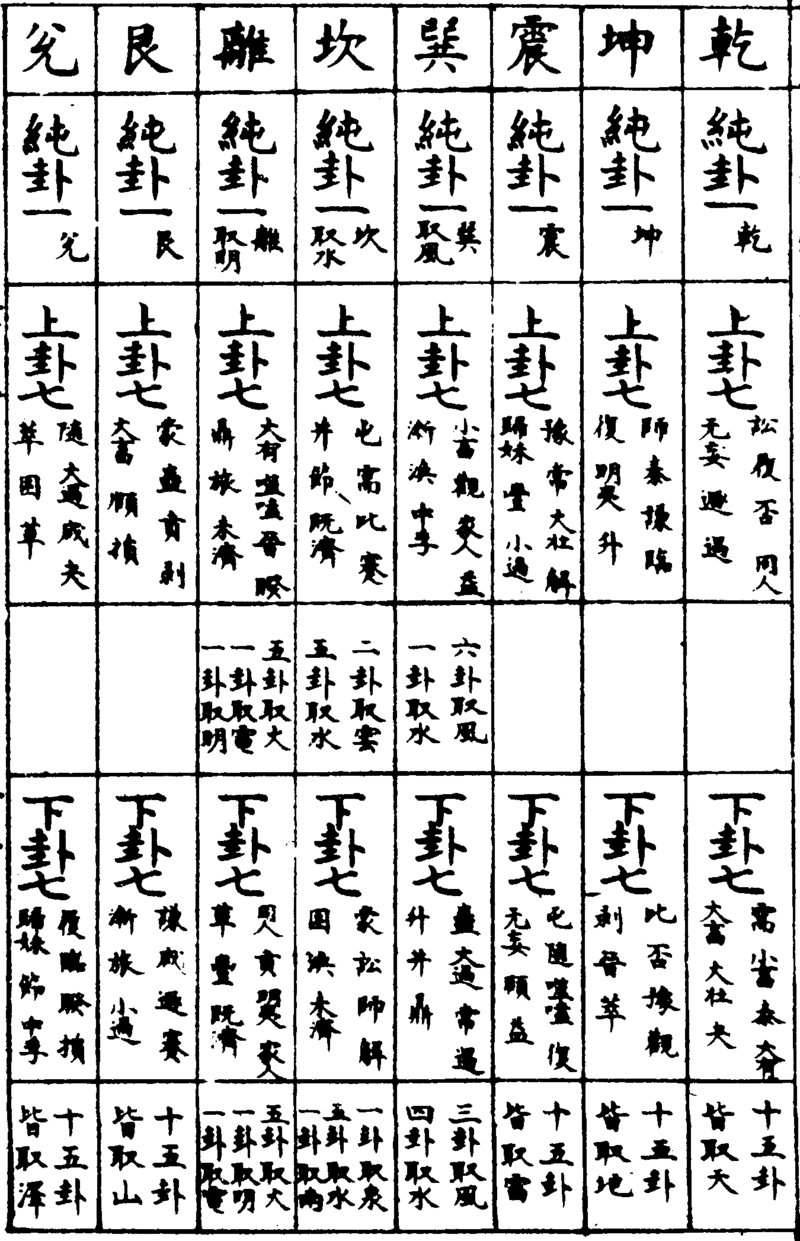 乾
純卦一
乾
上卦七
訟 履 否 同人
无妄 遯 遇
下卦七
需 小畜 泰 大有
大畜 大壯 夬
十五卦
皆取天
坤
純卦一
坤
上卦七
師 泰 謙 臨
復 明夷 升
下卦七
比 否 豫 觀
剥 晉 萃
十五卦
皆取地
震
純卦一
震
上卦七
豫 常 大壯 解
歸妹 豐 小過
下卦七
屯 隨 噬嗑 復
无妄 頤 益
十五卦
皆取雷
巽
純卦一
巽
取風
上卦七
小畜 觀 家人 益
漸 渙 中孚
六卦取風
一卦取水
下卦七
蠱 大過 常 遇
升 井 鼎
三卦取風
四卦取水
坎
純卦一
坎
取水
上卦七
屯 需 比 蹇
井 節 既濟
二卦取雲
五卦取水
下卦七
蒙 訟 師 解
困 渙 未濟
一卦取泉
五卦取水
一卦取雨
離
純卦一
離
取明
上卦七
大有 噬嗑 晉 睽
鼎 旅 未濟
五卦取火
一卦取電
一卦取明
下卦七
同人 賁 明夷 家人
革 豐 既濟
五卦取火
一卦取明
一卦取電
艮
純卦一
艮
上卦七
蒙 蠱 賁 剥
大畜 頤 損
下卦七
謙 咸 遯 蹇
漸 旅 小過
十五卦
皆取山
兌
純卦一
兌
上卦七
隨 大過 咸 夬
萃 困 革
下卦七
履 臨 睽 損
歸妹 節 中孚
十五卦
皆取澤